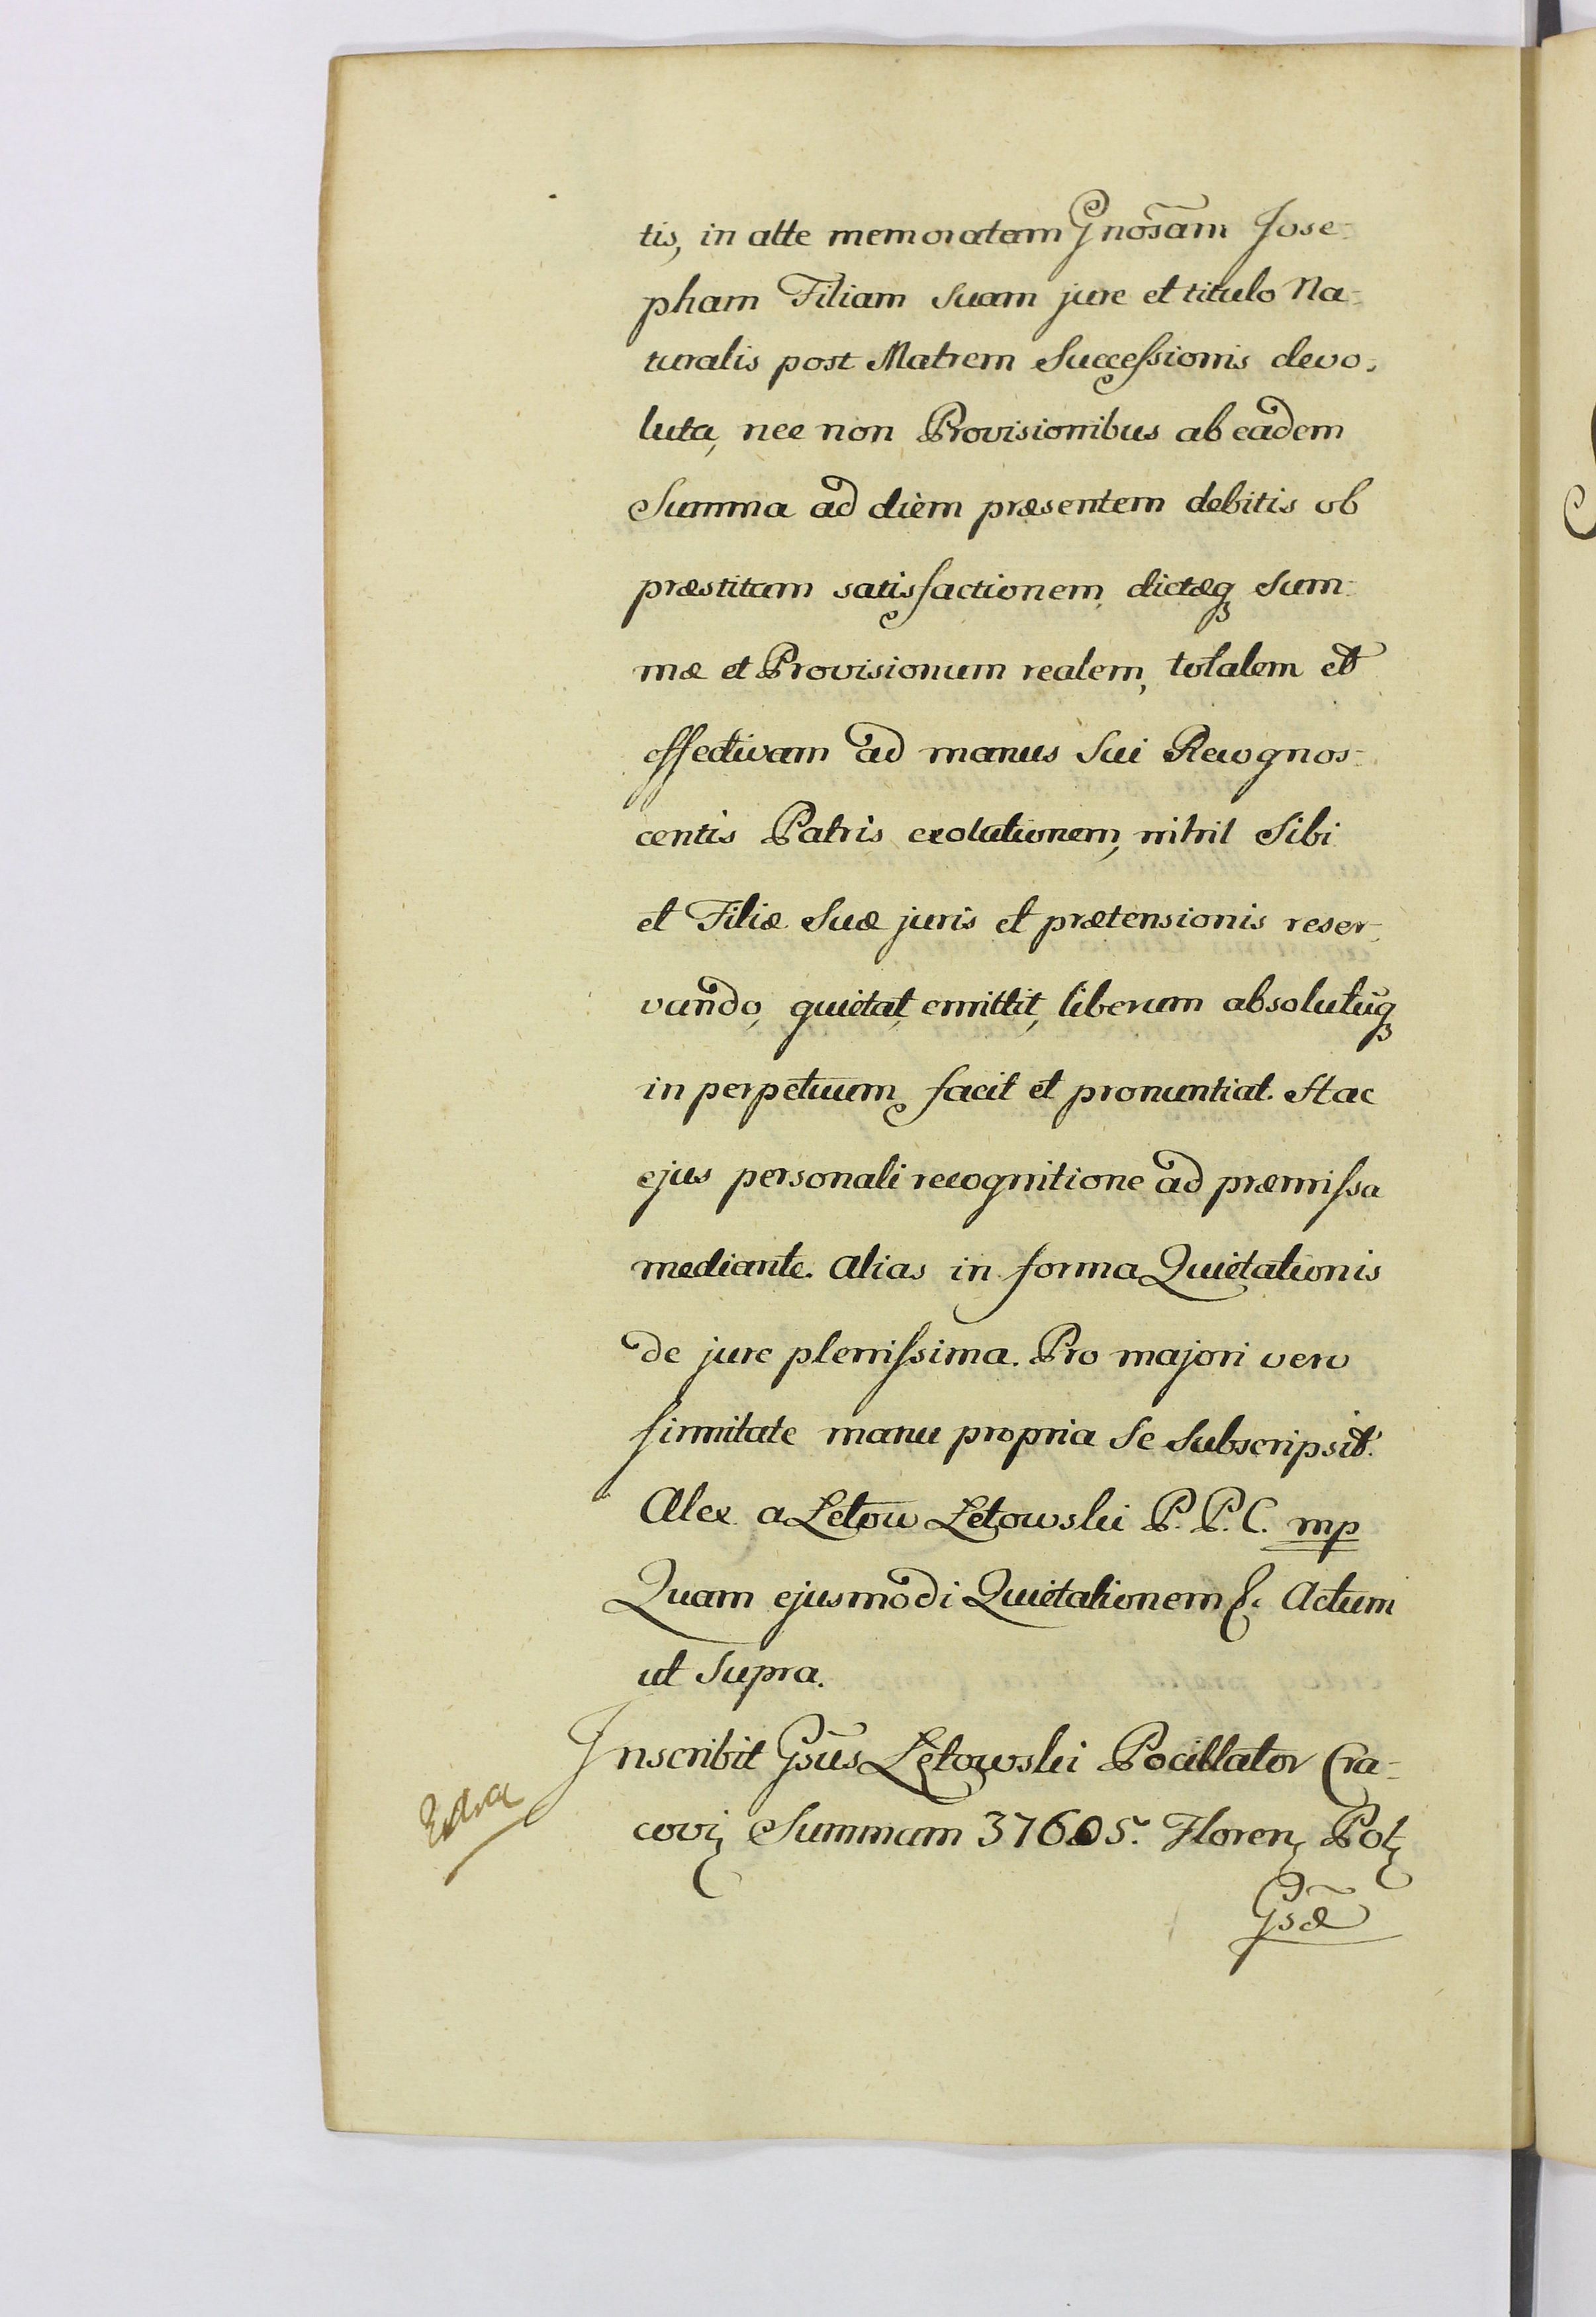 tis, in atte memoratam Gnosam Jose-
pham Filiam Suam jure et titulo Na-
turalis post Matrem Successionis devo-
luta, nec non Provisionibus ab eadem
Summa ad diem præsentem debitis ob
præstitam satisfactionem, dictæq Sum-
mæ et Provisionum realem, totalem et
effectivam ad manus Sui Recognos-
centis Patris exolutionem, nihil Sibi
et Filiæ Suæ juris et prætensionis reser-
vando, quietat, emittit, liberum absolutuq
in perpetuum facit et pronuntiat. Hac
ejus personali recognitione ad præmissa
mediante. Alias in forma Quietationis
de jure plenissima. Pro majori vero
firmitate manu propria Se Subscripsit.
Alex a Łetow Łętowski P. P. C. mp
Quam ejusmodi Quietationem &. Actum
ut Supra.
Inscribit Gsus Łętowski Pocillator Cra-
Extra
covi Summam 37605. Floren Pol
Gsæ